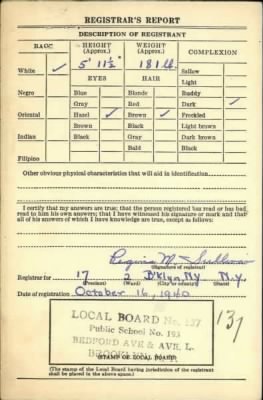 REGISTRAR'S REPORT
DESCRIPTION OF REGISTRANT
RACE HEIGHT (Approx.) WEIGHT (Approx.) COMPLEXION
White ✓ 5' 11½" 181 lb. Sallow
EYES HAIR Light
Negro Blue Blonde Ruddy
Gray Red Dark ✓
Oriental Hazel ✓ Brown ✓ Freckled
Brown Black Light brown
Indian Black Gray Dark brown
Bald Black
Filipino
Other obvious physical characteristics that will aid in identification
I certify that my answers are true; that the person registered has read or has had
read to him his own answers; that I have witnessed his signature or mark and that
all of his answers of which I have knowledge are true, except as follows:
Regina M. Sullivan
(Signature of registrar)
Registrar for 17 2 B'klyn, Ny N.Y.
(Precinct) (Ward) (City or county) (State)
Date of registration October 16, 1940
LOCAL BOARD No. 137
137
Public School No. 193
BEDFORD AVE & AVE. L.
BROOKLYN
(STAMP OF LOCAL BOARD)
(The stamp of the Local Board having jurisdiction of the registrant
shall be placed in the above space.)